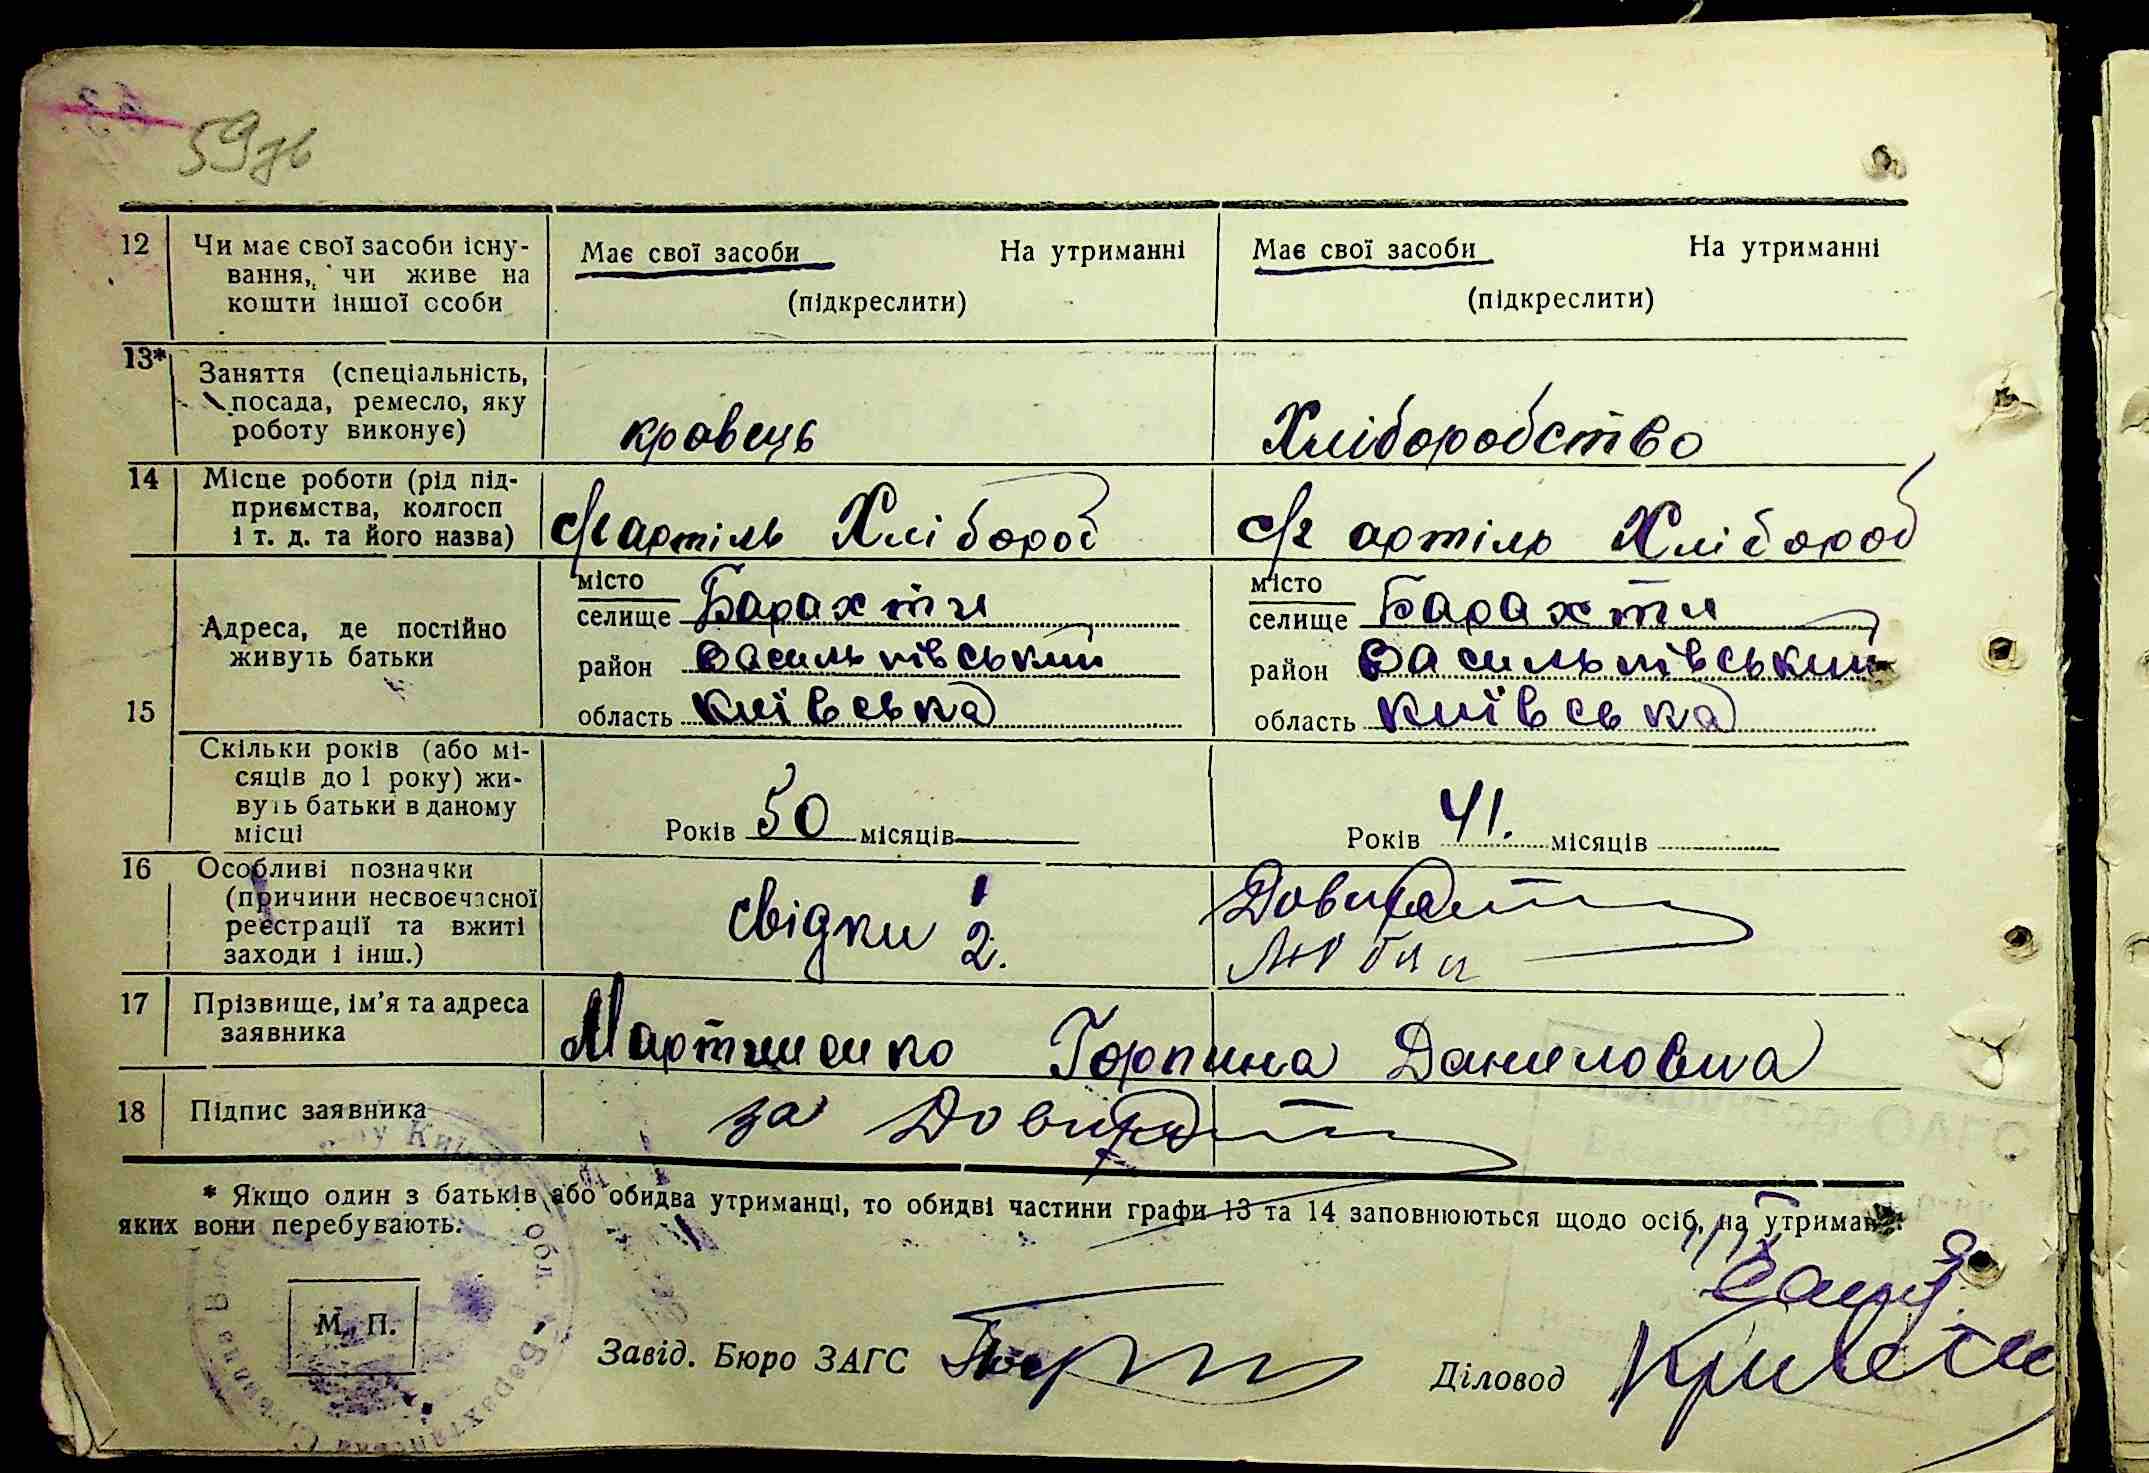 59зв
12 Чи має свої засоби існу-
вання, чи живе на
кошти іншої особи
Має свої засоби На утриманні
(підкреслити)
Має свої засоби На утриманні
(підкреслити)
13* Заняття (спеціальність,
посада, ремесло, яку
роботу виконує)
кравець
Хліборобство
14 Місце роботи (рід під-
приємства, колгосп
і т. д. та його назва)
с/г артіль Хлібороб
с/г артіль Хлібороб
15 Адреса, де постійно
живуть батьки
місто
селище Барахти
район Васильківський
область Київська
місто
селище Барахти
район Васильківський
область Київська
Скільки років (або мі-
сяців до 1 року) жи-
вуть батьки в даному
місці
Років 50 місяців
Років 41. місяців
16 Особливі позначки
(причини несвоєчасної
реєстрації та вжиті
заходи і інш.)
свідки 1
2.
17 Прізвище, ім'я та адреса
заявника
Мартиненко Горпина Даниловна
18 Підпис заявника
за
* Якщо один з батьків або обидва утриманці, то обидві частини графи 13 та 14 заповнюються щодо осіб, на утриман
яких вони перебувають.
М. П.
Завід. Бюро ЗАГС
Діловод